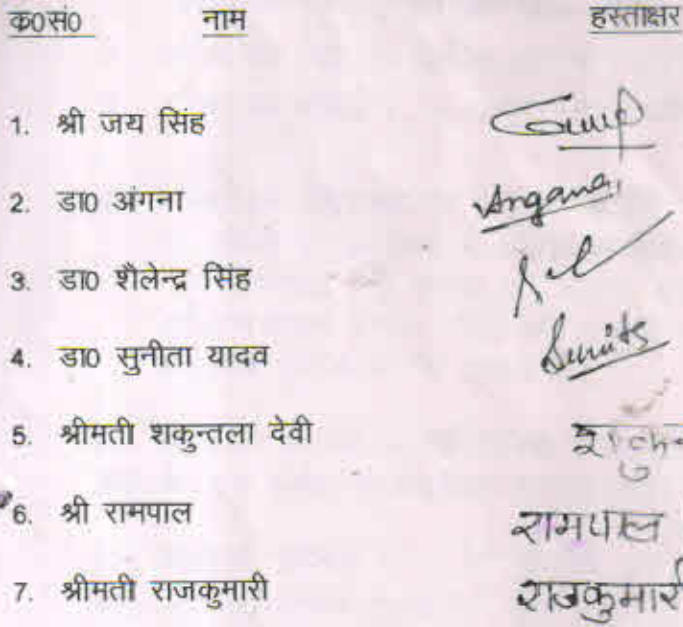 क0सं0 नाम हस्ताक्षर
1. श्री जय सिंह
2. डा0 अंगना Angana
3. डा0 शैलेन्द्र सिंह
4. डा0 सुनीता यादव Sunita
5. श्रीमती शकुन्तला देवी
6. श्री रामपाल रामपाल
7. श्रीमती राजकुमारी राजकुमारी